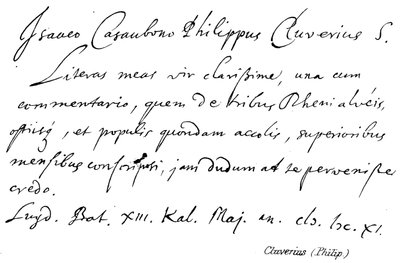 Isaaco Casaubono Philippus Cluverius S.
Literas meas vir clarissime, una cum
commentario, quem de tribus Rheni alveis,
ostiisq, et populis quondam accolis, superioribus
mensibus conscripsi, jam dudum ad te pervenisse
credo.
Lugd. Bat. XIII. Kal. Maj. an. cIɔ. Iɔc. XI.
Cluverius (Philip)